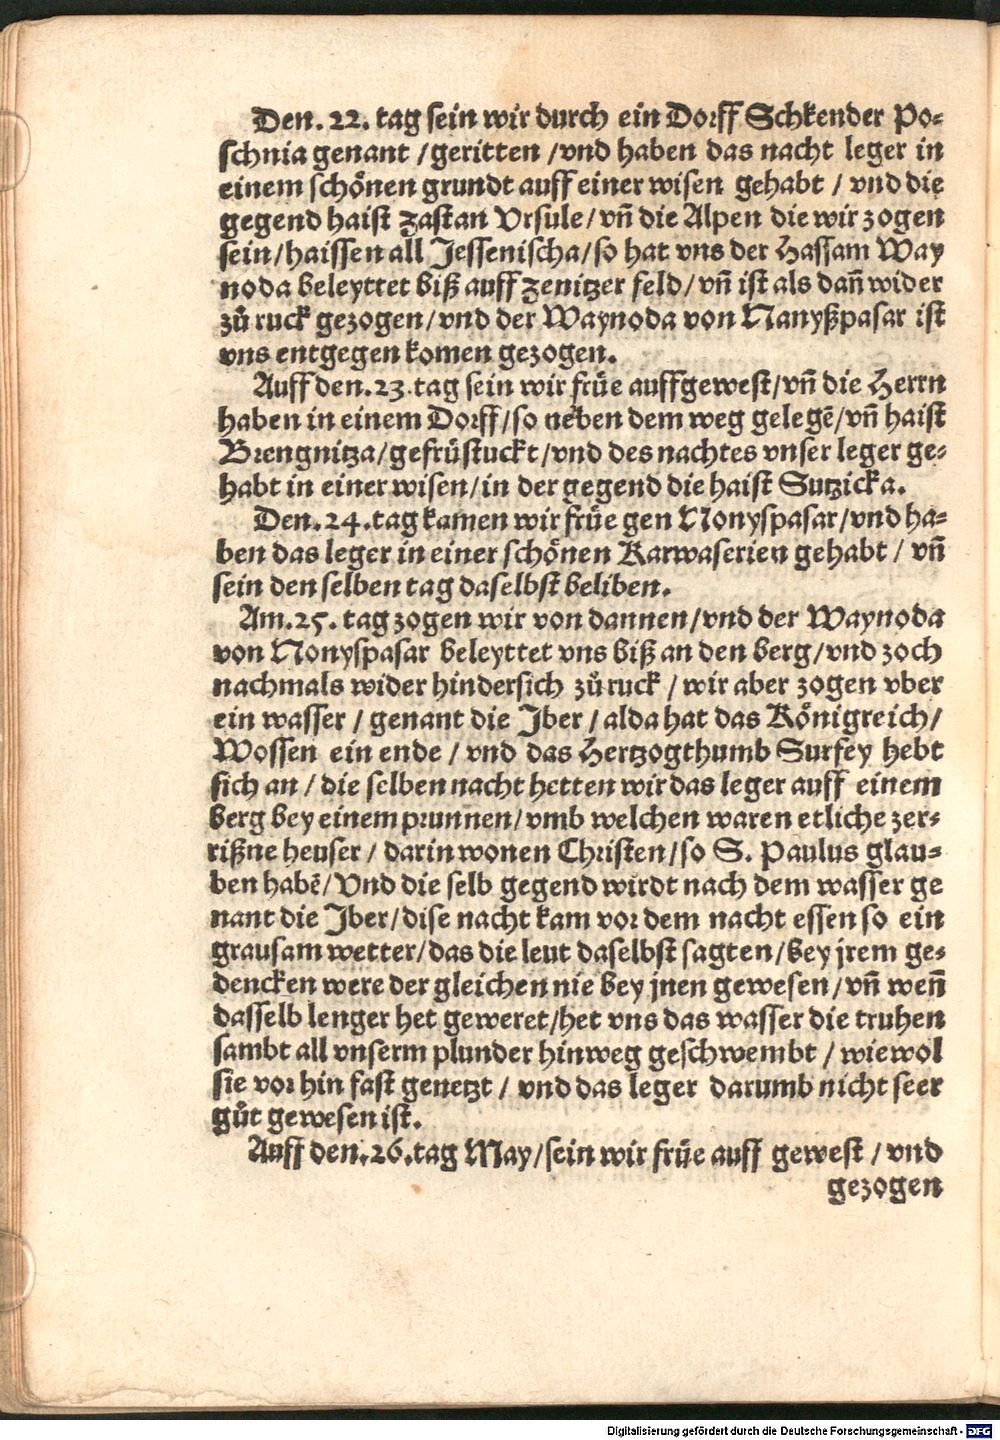 Den. 22. tag sein wir durch ein Dorff Schkender Po⸗
schnia genant / geritten / vnd haben das nacht leger in
einem schoͤnen grundt auff einer wisen gehabt / vnd die
gegend haist Zastan Vrsule / vñ die Alpen die wir zogen
sein / haissen all Jessenischa / so hat vns der Hassam Way
noda beleyttet biß auff Zenitzer feld / vñ ist als dañ wider
zuͦ ruck gezogen / vnd der Waynoda von Nanyßpasar ist
vns entgegen komen gezogen.
Auff den. 23. tag sein wir fruͤe auffgewest / vñ die Herrn
haben in einem Dorff / so neben dem weg gelegẽ / vñ haist
Brengnitza / gefruͤstuckt / vnd des nachtes vnser leger ge⸗
habt in einer wisen / in der gegend die haist Sutzicka.
Den. 24. tag kamen wir fruͤe gen Nonyspasar / vnd ha⸗
ben das leger in einer schoͤnen Karwaserien gehabt / vñ
sein den selben tag daselbst beliben.
Am. 25. tag zogen wir von dannen / vnd der Waynoda
von Nonyspasar beleyttet vns biß an den berg / vnd zoch
nachmals wider hindersich zuͦ ruck / wir aber zogen vber
ein wasser / genant die Jber / alda hat das Koͤnigreich /
Wossen ein ende / vnd das Hertzogthumb Surfey hebt
sich an / die selben nacht hetten wir das leger auff einem
berg bey einem prunnen / vmb welchen waren etliche zer⸗
rißne heuser / darin wonen Christen / so S. Paulus glau⸗
ben habẽ / Vnd die selb gegend wirdt nach dem wasser ge
nant die Jber / dise nacht kam vor dem nacht essen so ein
grausam wetter / das die leut daselbst sagten / bey jrem ge⸗
dencken were der gleichen nie bey jnen gewesen / vñ weñ
dasselb lenger het geweret / het vns das wasser die truhen
sambt all vnserm plunder hinweg geschwembt / wiewol
sie vor hin fast genetzt / vnd das leger darumb nicht seer
guͦt gewesen ist.
Auff den. 26. tag May / sein wir fruͤe auff gewest / vnd
gezogen
Digitalisierung gefördert durch die Deutsche Forschungsgemeinschaft - DFG